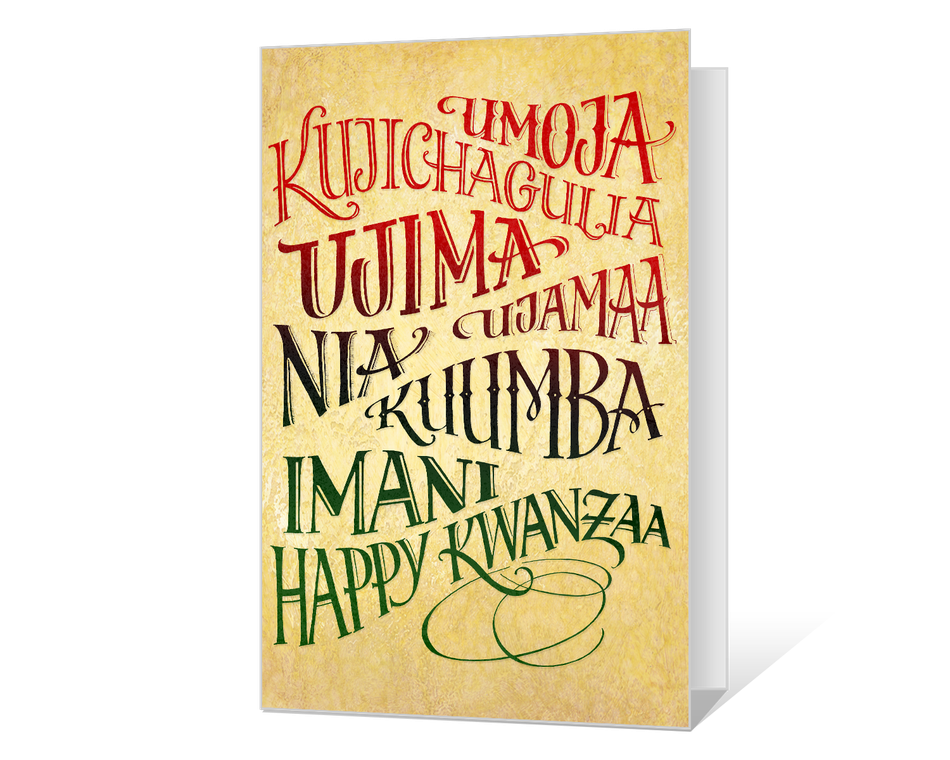 UMOJA
KUJICHAGULIA
UJIMA
UJAMAA
NIA
KUUMBA
IMANI
HAPPY KWANZAA